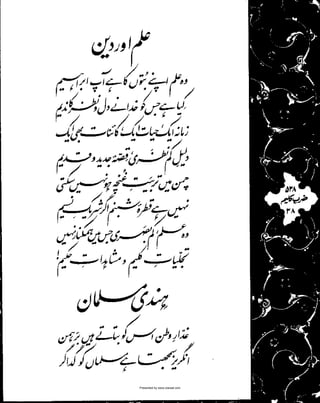 علم اور دین
وہ علم اپنے بتوں کا ہے آپ ابراہیم
کیا ہے جس کو خدا نے دل و نظر کا ندیم
زمانہ ایک، حیات ایک، کائنات بھی ایک
دلیل کم نظری قصۂ جدید و قدیم
چمن میں تربیت غنچہ ہو نہیں سکتی
نہیں ہے قطرۂ شبنم اگر شریک نسیم
وہ علم، کم بصری جس میں ہمکنار نہیں
تجلیات کلیم و مشاہدات حکیم!
ہندی مسلمان
غدار وطن اس کو بتاتے ہیں برہمن
انگریز سمجھتا ہے مسلماں کو گداگر
۵۳۸
ضرب کلیم
۳۸